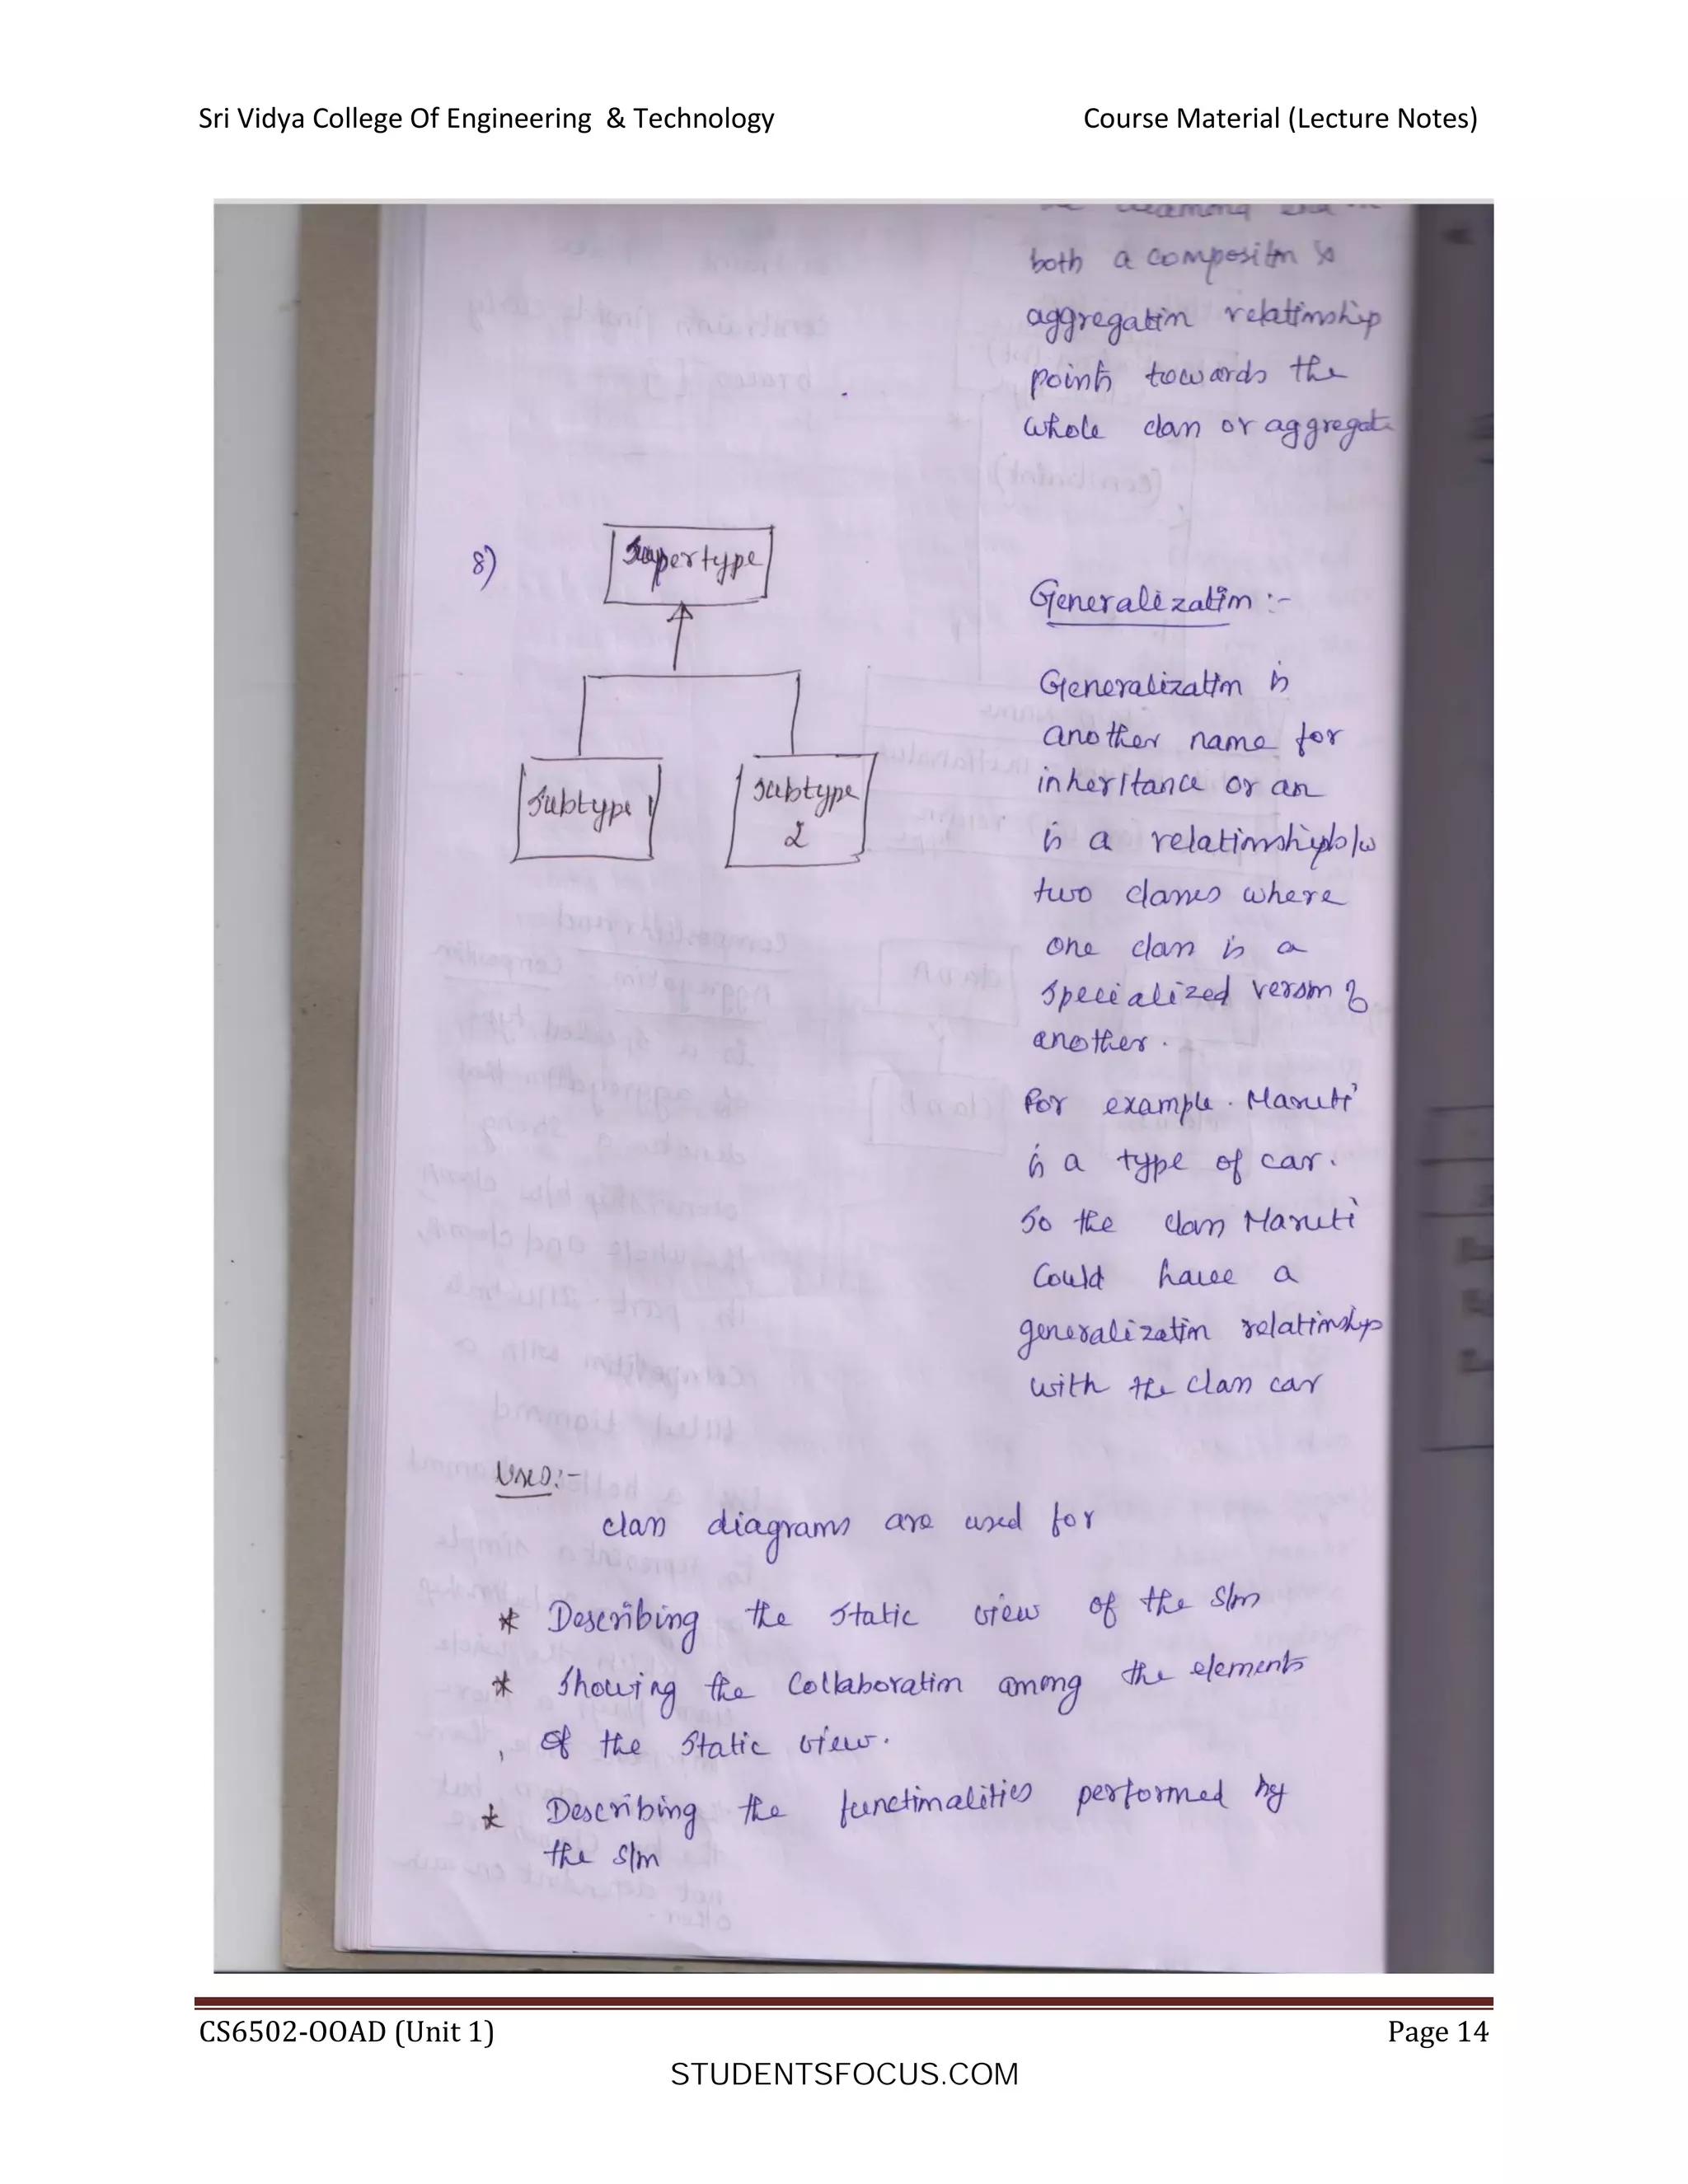 Sri Vidya College Of Engineering & Technology Course Material (Lecture Notes)
both a composition &
aggregation relationship
points towards the
whole class or aggregate
8)
Supertype
Subtype 1
Subtype
2
Generalization :-
Generalization is
another name for
inheritance or an
is a relationship b/w
two classes where
one class is a
specialized version of
another.
For example. Maruti
is a type of car.
So the class Maruti
Could have a
generalization relationship
with the class car
Uses:-
class diagrams are used for
* Describing the static view of the s/m
* Showing the Collaboration among the elements
of the static view.
* Describing the functionalities performed by
the s/m
CS6502-OOAD (Unit 1) Page 14
STUDENTSFOCUS.COM